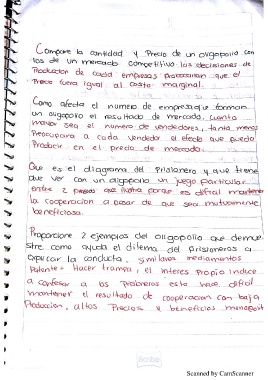 Compare la cantidad y Precio de un oligopolio con
los de un mercado competitivo las decisiones de
Produccion de cada empresas procasionan que el
Precio fuera igual al costo marginal.
Como afecta el numero de empresas que forman
un oligopolio el resultado de mercado, cuanto
mayor sea el numero de vendedores, tanta menos
Preocupara a cada vendedor el efecto que puede
Producir en el precio de mercado.
Que es el diagrama del Prisionero y que tiene
que ver con un oligopolio un juego particular
entre 2 porque es dificil mantener
la cooperacion a pesar de que sea mutuamente
beneficiosa.
Proporcione 2 ejemplos del oligopolio que demue
stre como ayuda el dilema del prisioneros a
explicar la conducta, similares medicamentos
Patente + Hacer trampa, el interes Propio induce
a confesar a los es dificil
mantener el resultado de cooperacion con baja
Produccion, altos Precios y beneficios
Scribe
Scanned by CamScanner